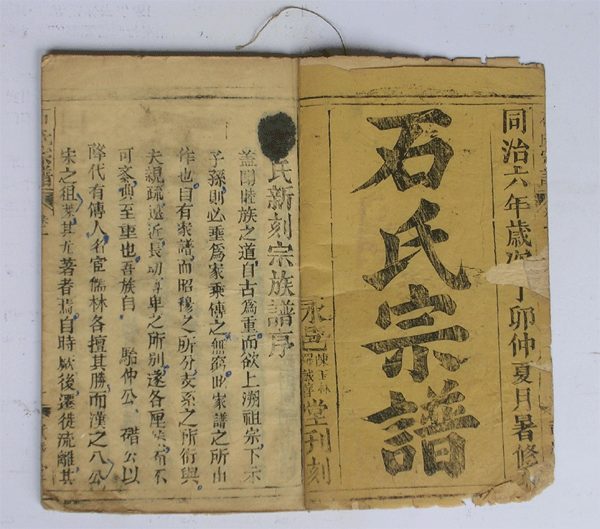 同治六年歲次丁卯仲夏月暑修
石氏宗譜
永邑
堂刊刻
氏新刻宗族譜序
蓋聞睦族之道自古為重而欲上溯祖宗下示
子孫則必垂為家乘傳之無窮此家譜之所由
作也自有家譜而昭穆之所分支系之所衍與
夫親疏遠近長幼尊卑之所別遂各厘然不
可紊典至重也吾族自 駘仲公 碏公以
降代有傳人名宦儒林各擅其勝而漢之八公
宋之祖萊其尤著者焉自時厥後遷徙流離其